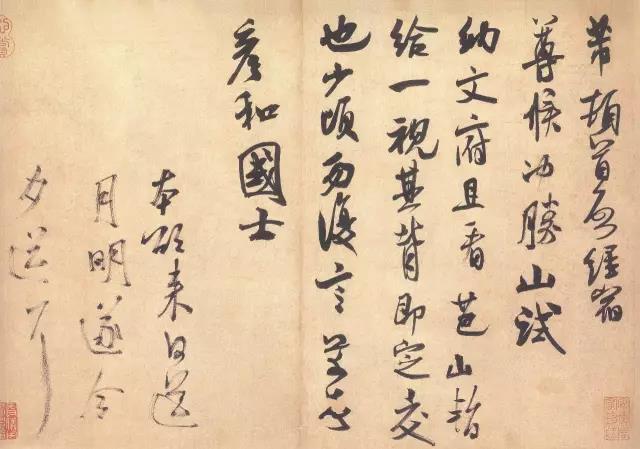 芾頓首啓經宿
尊候冲勝山試
納文府且看芭山暫
給一視其背即定交
也少頃勿復言芾頓首
彥和國士
本欲来日送
月明遂今
夕送耳